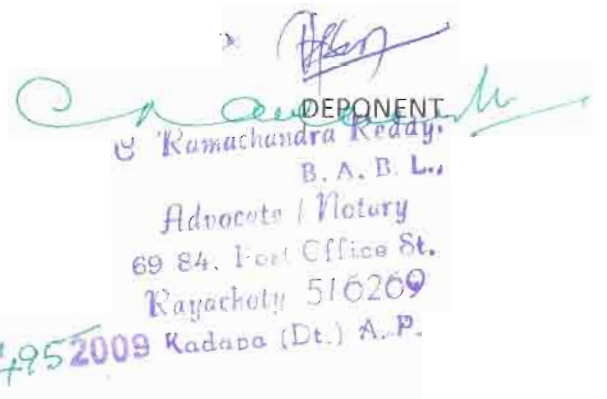 DEPONENT
C Ramachandra Reddy.
B. A. B. L.,
Advocate / Notary
69 84. Post Office St.
Rayachoty 516269
495 2009 Kadapa (Dt.) A. P.